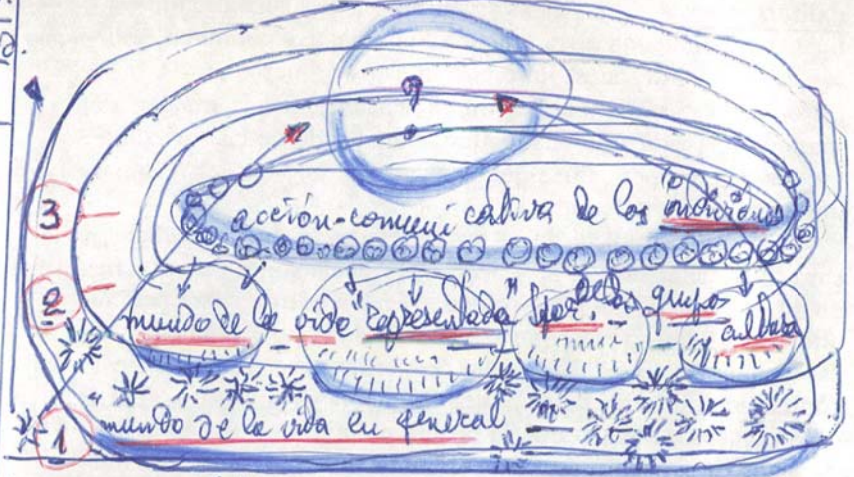 ?
3
acción-comunicativa de los individuos
2
mundo de la vida "representada" por: los grupos
cultura
1
mundo de la vida en general